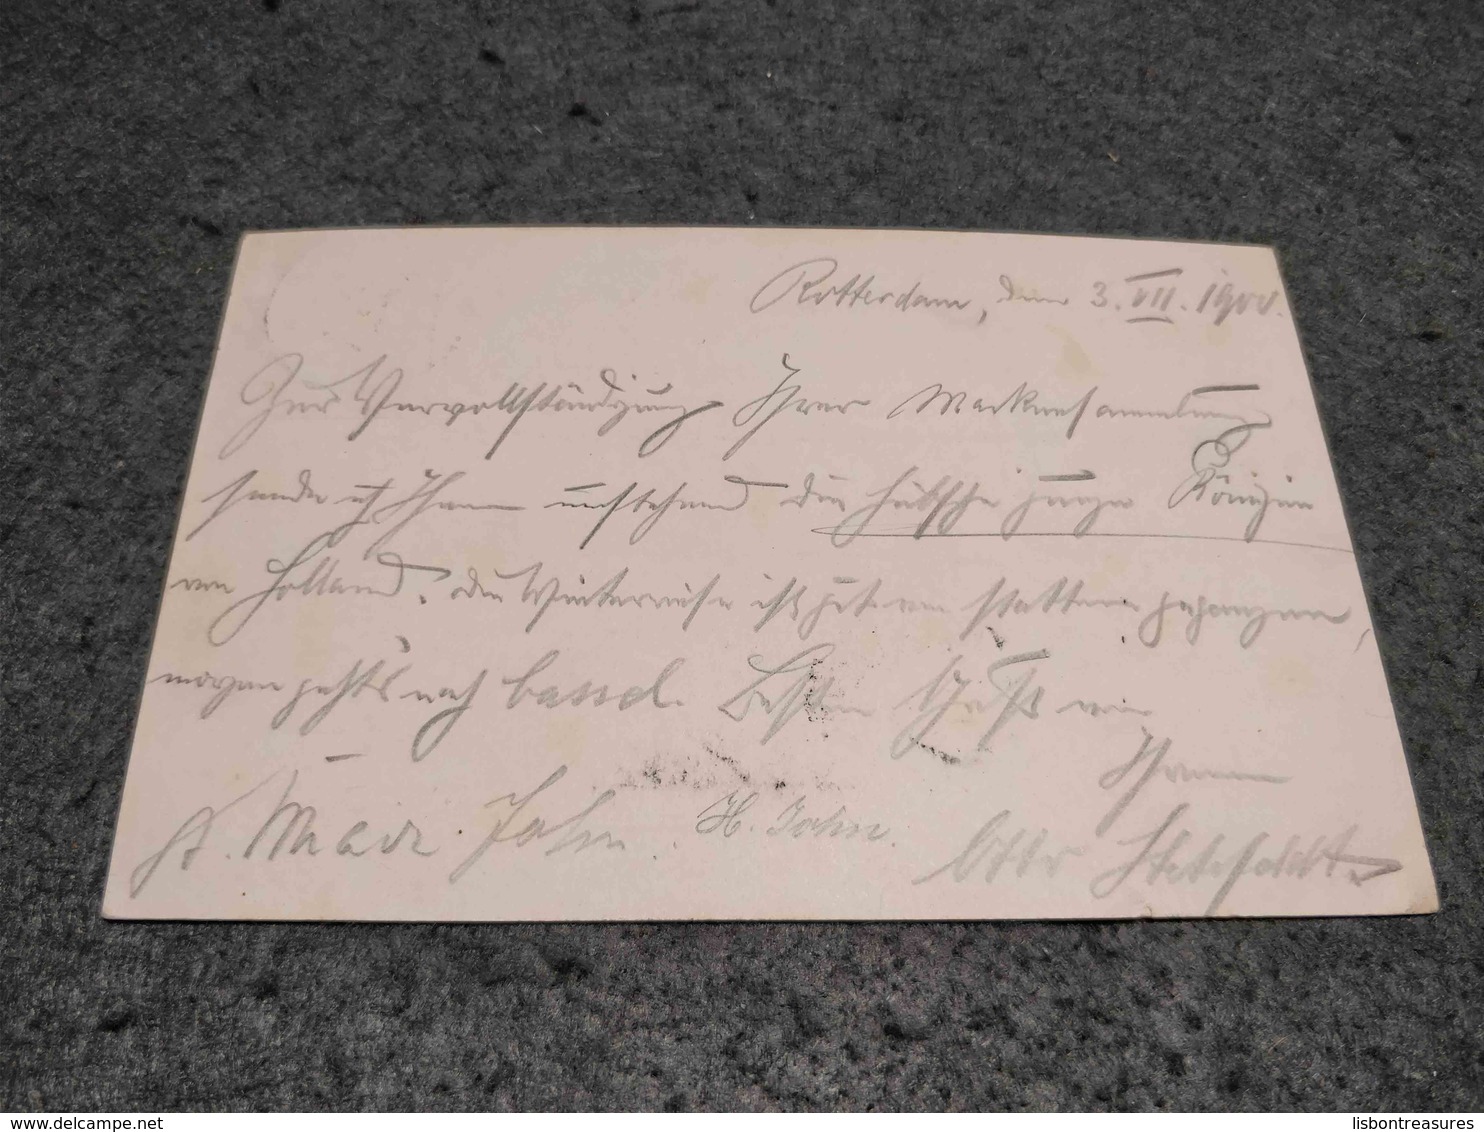 Rotterdam, den 3. VII. 1900.
Zur Vervollständigung Ihrer Markensammlung
sende ich Ihnen umstehend die hübsche junge Königin
von Holland. Die Weiterreise ist gut von statten gegangen,
morgen geht's nach Cassel. Besten Gruß von
Ihrem
John. H. John. Otto
© delcampe.net
lisbontreasures